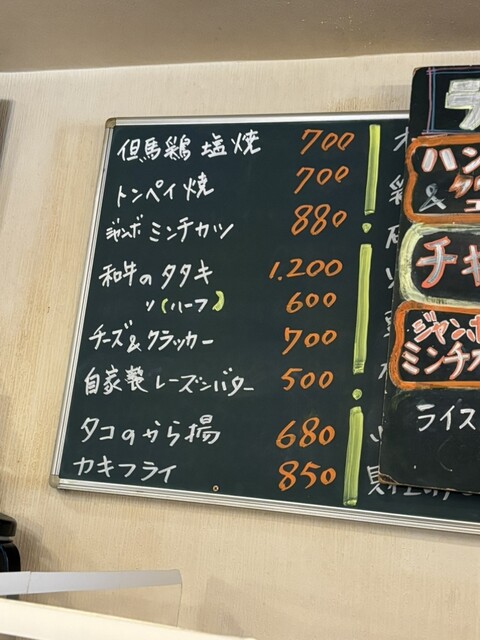 但馬鶏塩焼 700
トンペイ焼 700
ジャンボミンチカツ 880.
和牛のタタキ 1.200
〃(ハーフ) 600
チーズ&クラッカー 700
自家製レーズンバター 500
タコのから揚 680
カキフライ 850
ハン
&
チャ
ジャンボ
ミンチカ
ライス